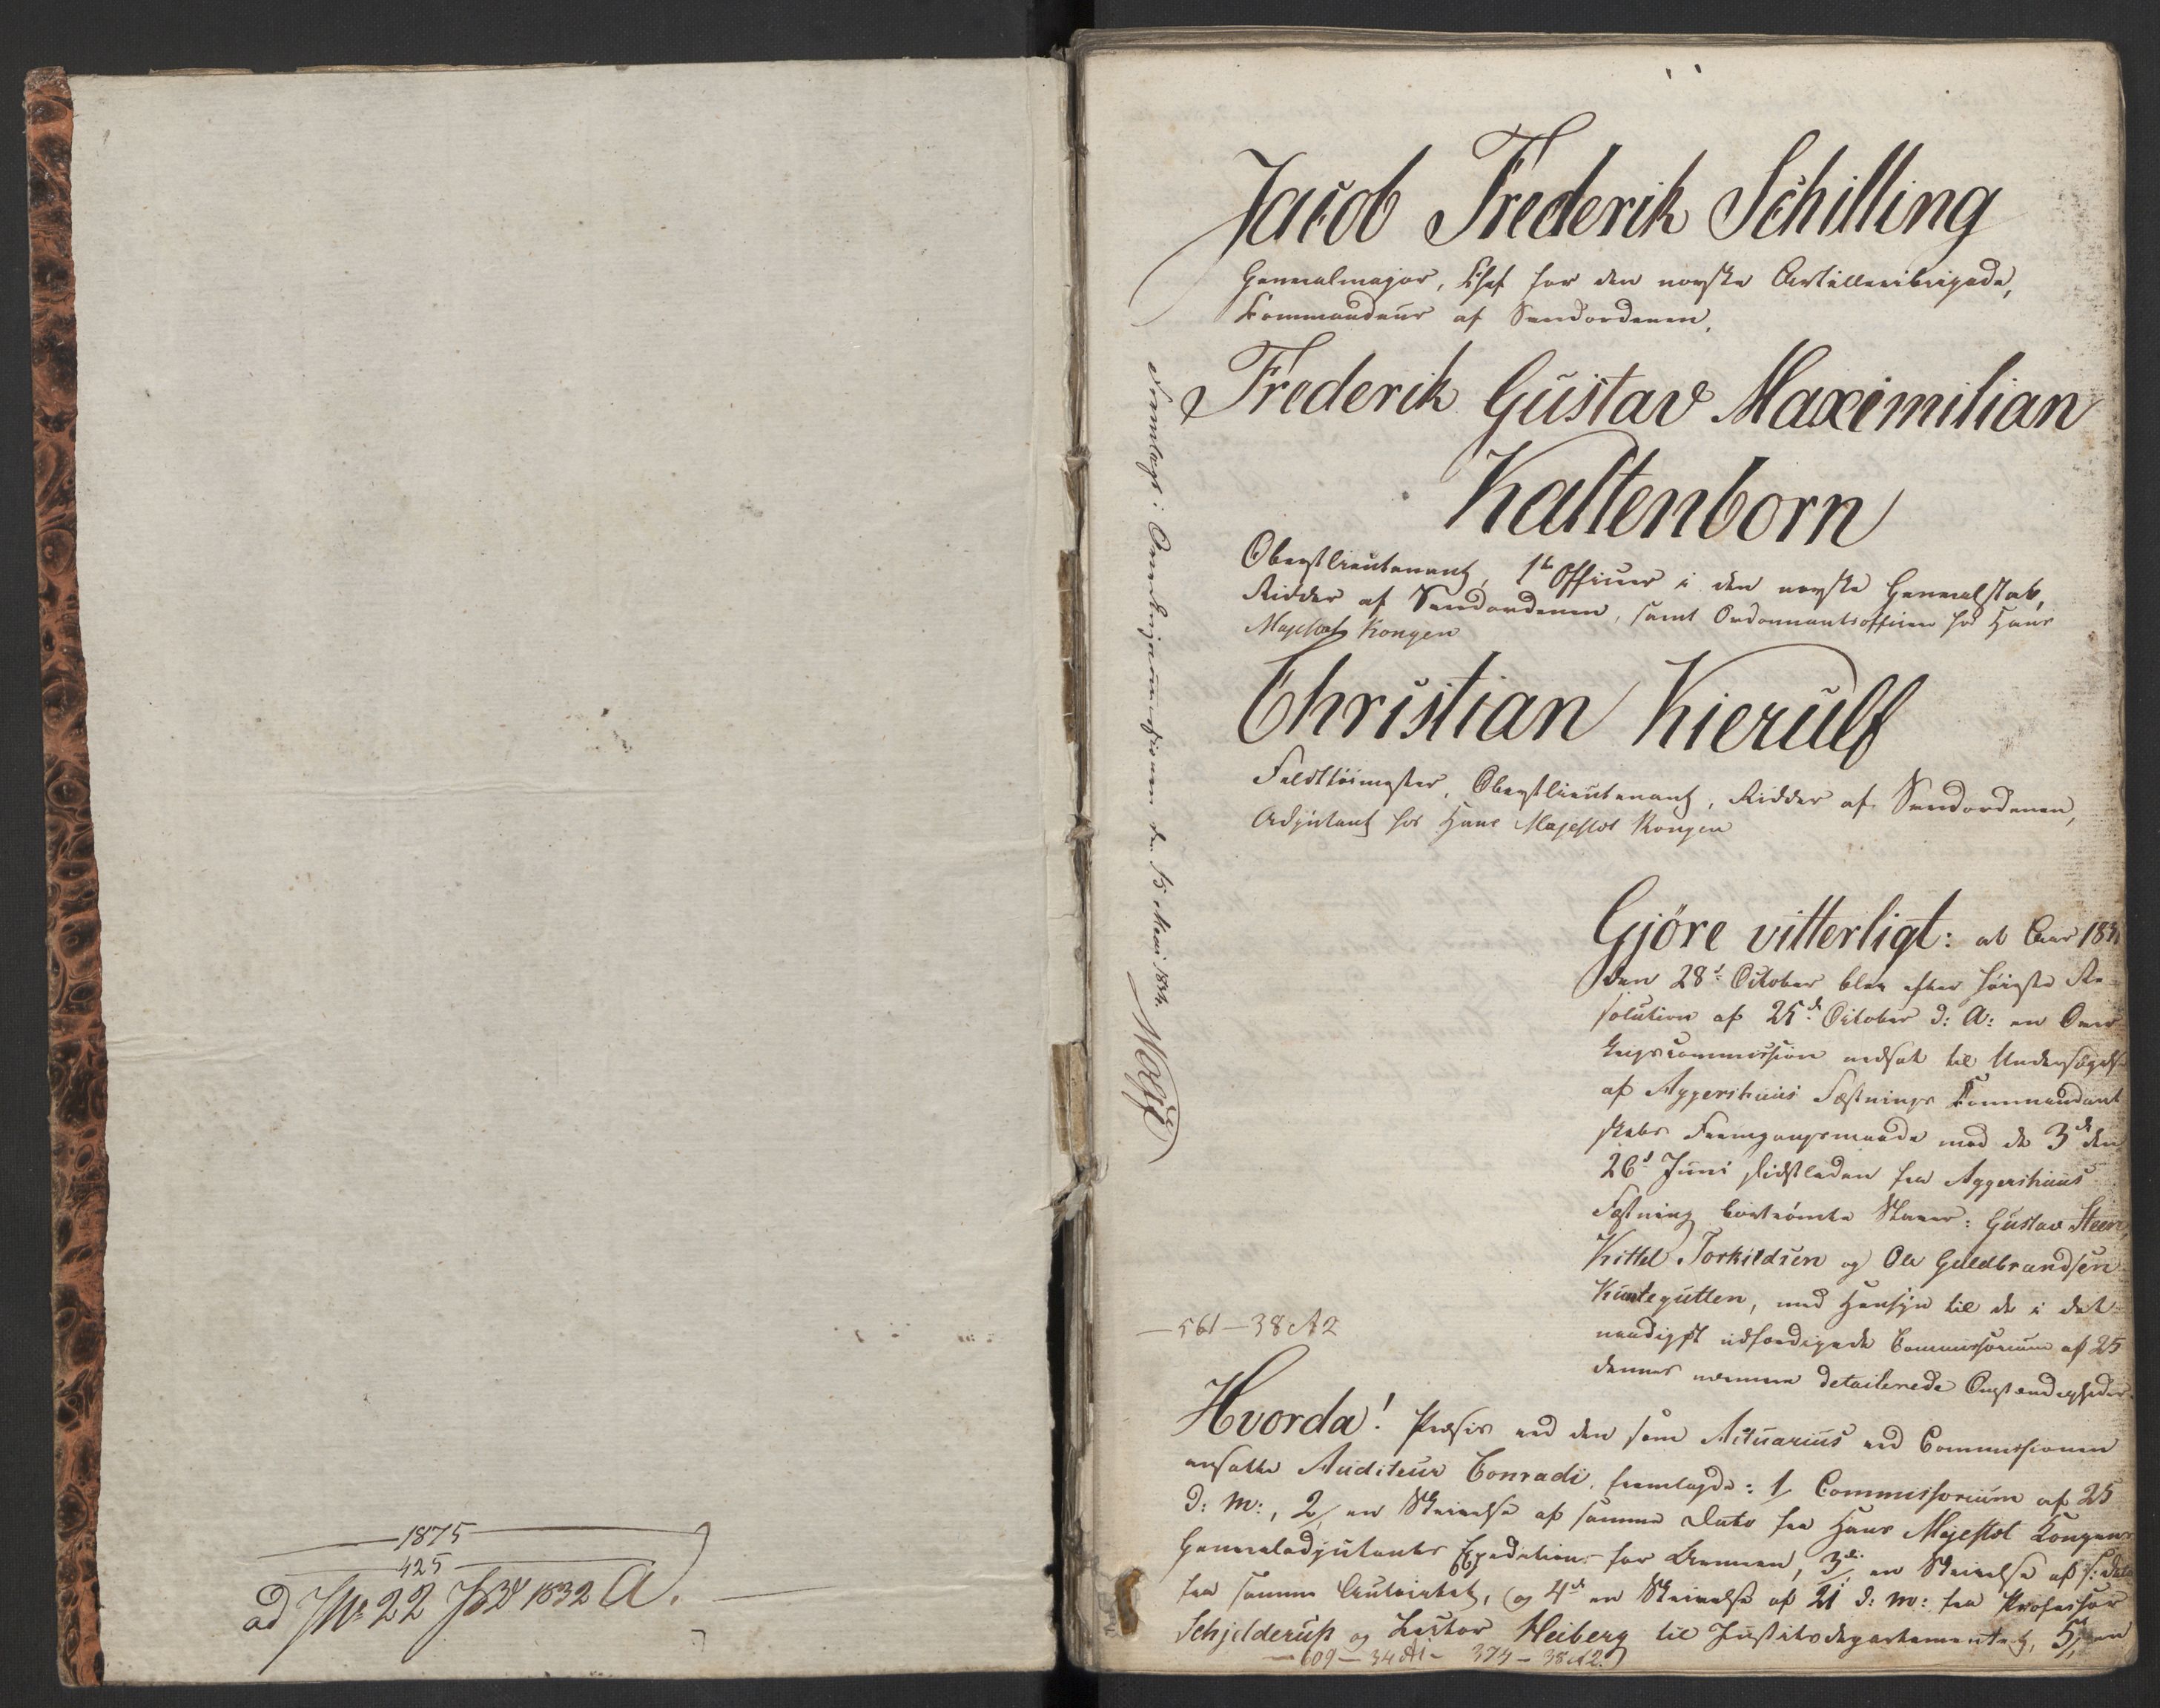 1875
425
ad JNo 22 JD 1832 A.
Fremlagt i Overkrigscommissionen den 15 Mai 1834.
Jacob Frederik Schilling
Generalmajor, Chef for den norske Artilleribrigade,
Kommandeur af Sværdordenen,
Frederik Gustav Maximilian
Kaltenborn
Oberstlieutenant, 1te Officier i den norske Generalstab,
Ridder af Sværdordenen, samt Ordonnantsofficier hos Hans
Majestæt Kongen
Christian Kierulf
Feldttøimester, Oberstlieutenant, Ridder af Sværdordenen,
Adjutant hos Hans Majestæt Kongen
Gjöre vitterligt: at Aar 183
den 28d October blev efter høieste Re-
solution af 25de October d: A: en Over-
krigscommission nedsat til Undersøgelse
af Aggershuus Fæstnings Kommandant
skabs Fremgangsmaade mod de 3de den
26d Juni sidstleden fra Aggershuus
Fæstning bortrømte Slaver: Gustav Steen,
Kittel Torkildsen og Ole Guldbrandsen
Kuntegutten, med Hensyn til de i det
naadigst udfærdigede Commissorium af 25
dennes nærmere detaillerede Omstændigheder.
561-38 A2
Hvorda! Præses ved den som Actuarius ved Commissionen
ansatte Auditeur Conradi, fremlagde: 1/ Commissorium af 25
d: m:, 2/ en Skrivelse af samme Dato fra Hans Majestæt Kongens
Generaladjutants Expedition for Armeen, 3de/ en Skrivelse af s: Dato
fra samme Autoritet, og 4de en Skrivelse af 21 d: m: fra Professor
Schjelderup og Lector Heiberg til Justitsdepartementet, 5/ en
609-34 A1- 373-38 A2.